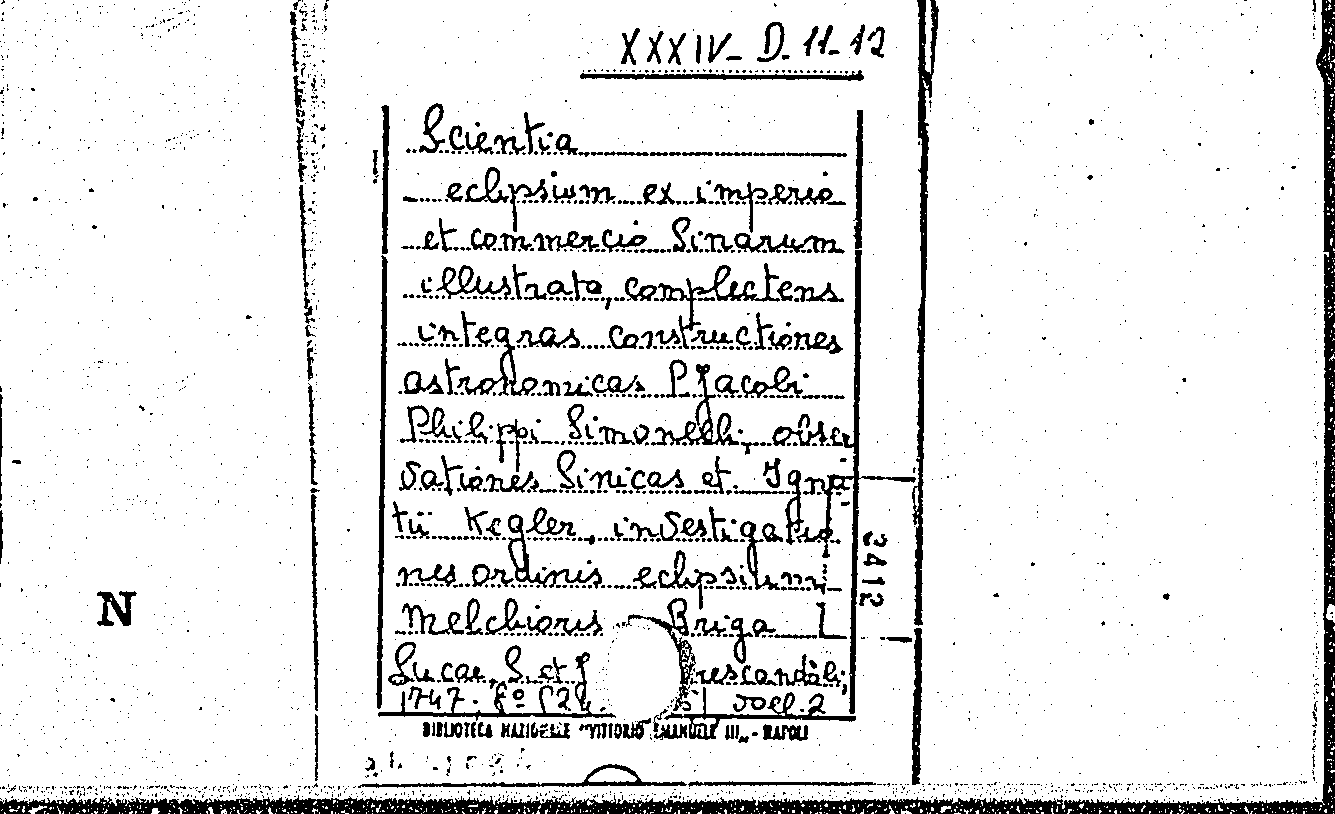 XXXIV- D. 11-12
Scientia
eclipsium ex imperio
et commercio Sinarum
illustrata, complectens
integras constructiones
astronomicas P. Jacobi
Philippi Simonelli, obser
vationes Sinicas et. Igna
tii Kegler, investigatio
nes ordinis eclipsium
Melchioris Briga
Lucae, S. et J rescandoli,
1747. 8º voll. 2
BIBLIOTECA NAZIONALE "VITTORIO EMANUELE III" - NAPOLI
2412
N